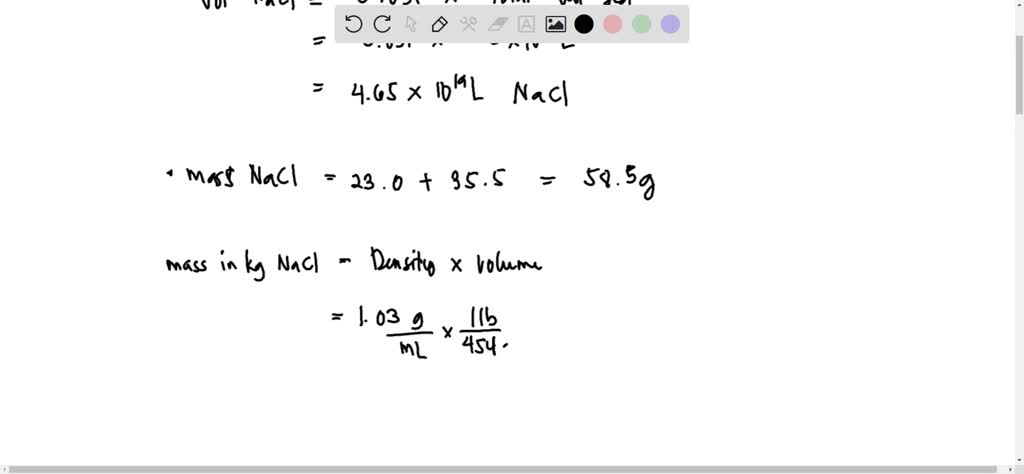 =
= 4.65 × 10¹⁹ L NaCl
• mass NaCl = 23.0 + 35.5 = 58.5g
mass in kg NaCl = Density × volume
= 1.03 g / mL × 1 lb / 454.